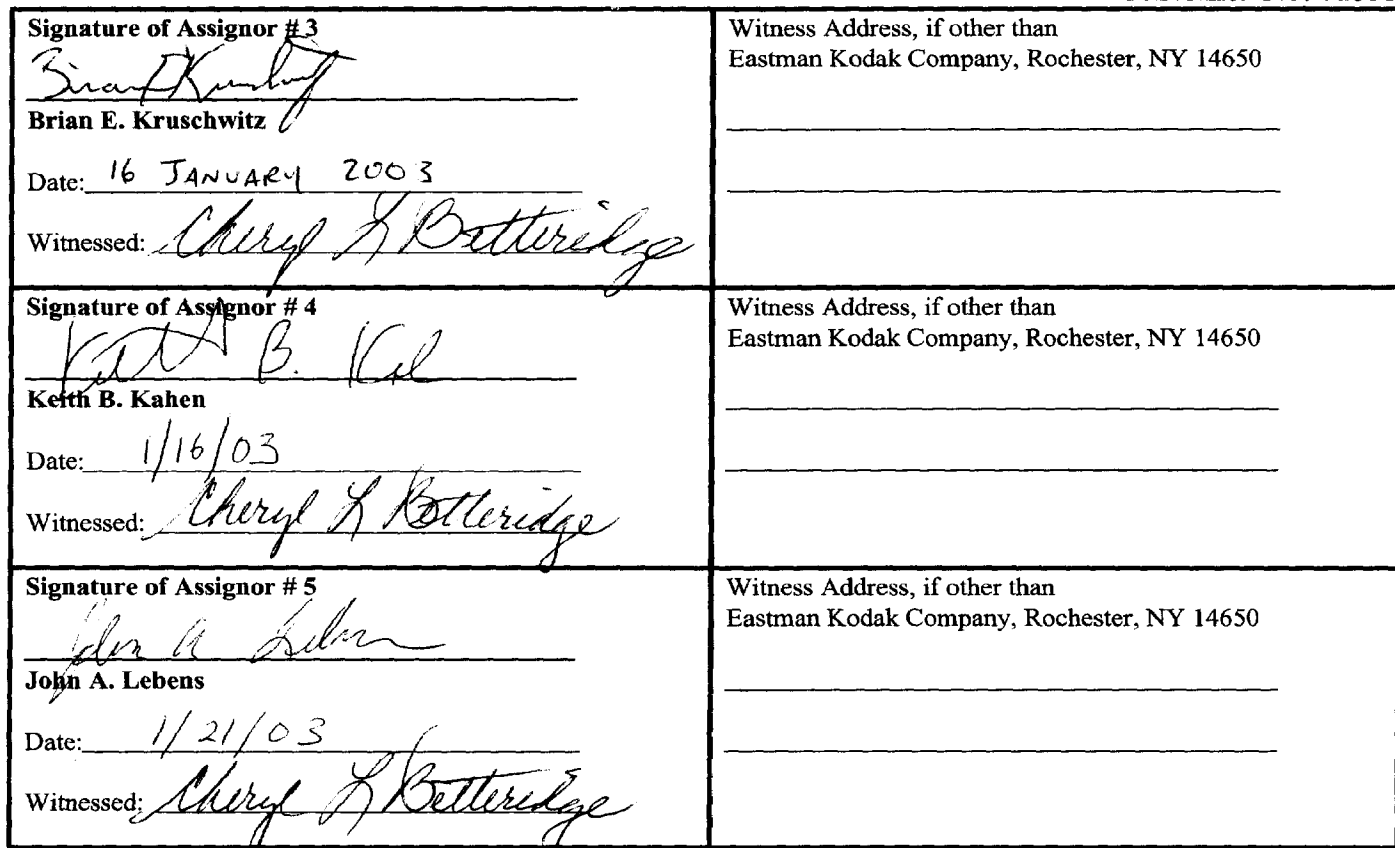 Signature of Assignor # 3
Brian E. Kruschwitz
Brian E. Kruschwitz
Date: 16 JANUARY 2003
Witnessed: Cheryl L Betteridge
Witness Address, if other than
Eastman Kodak Company, Rochester, NY 14650
Signature of Assignor # 4
Keith B. Kahen
Date: 1/16/03
Witnessed: Cheryl L Betteridge
Witness Address, if other than
Eastman Kodak Company, Rochester, NY 14650
Signature of Assignor # 5
John A Lebens
John A. Lebens
Date: 1/21/03
Witnessed: Cheryl L Betteridge
Witness Address, if other than
Eastman Kodak Company, Rochester, NY 14650